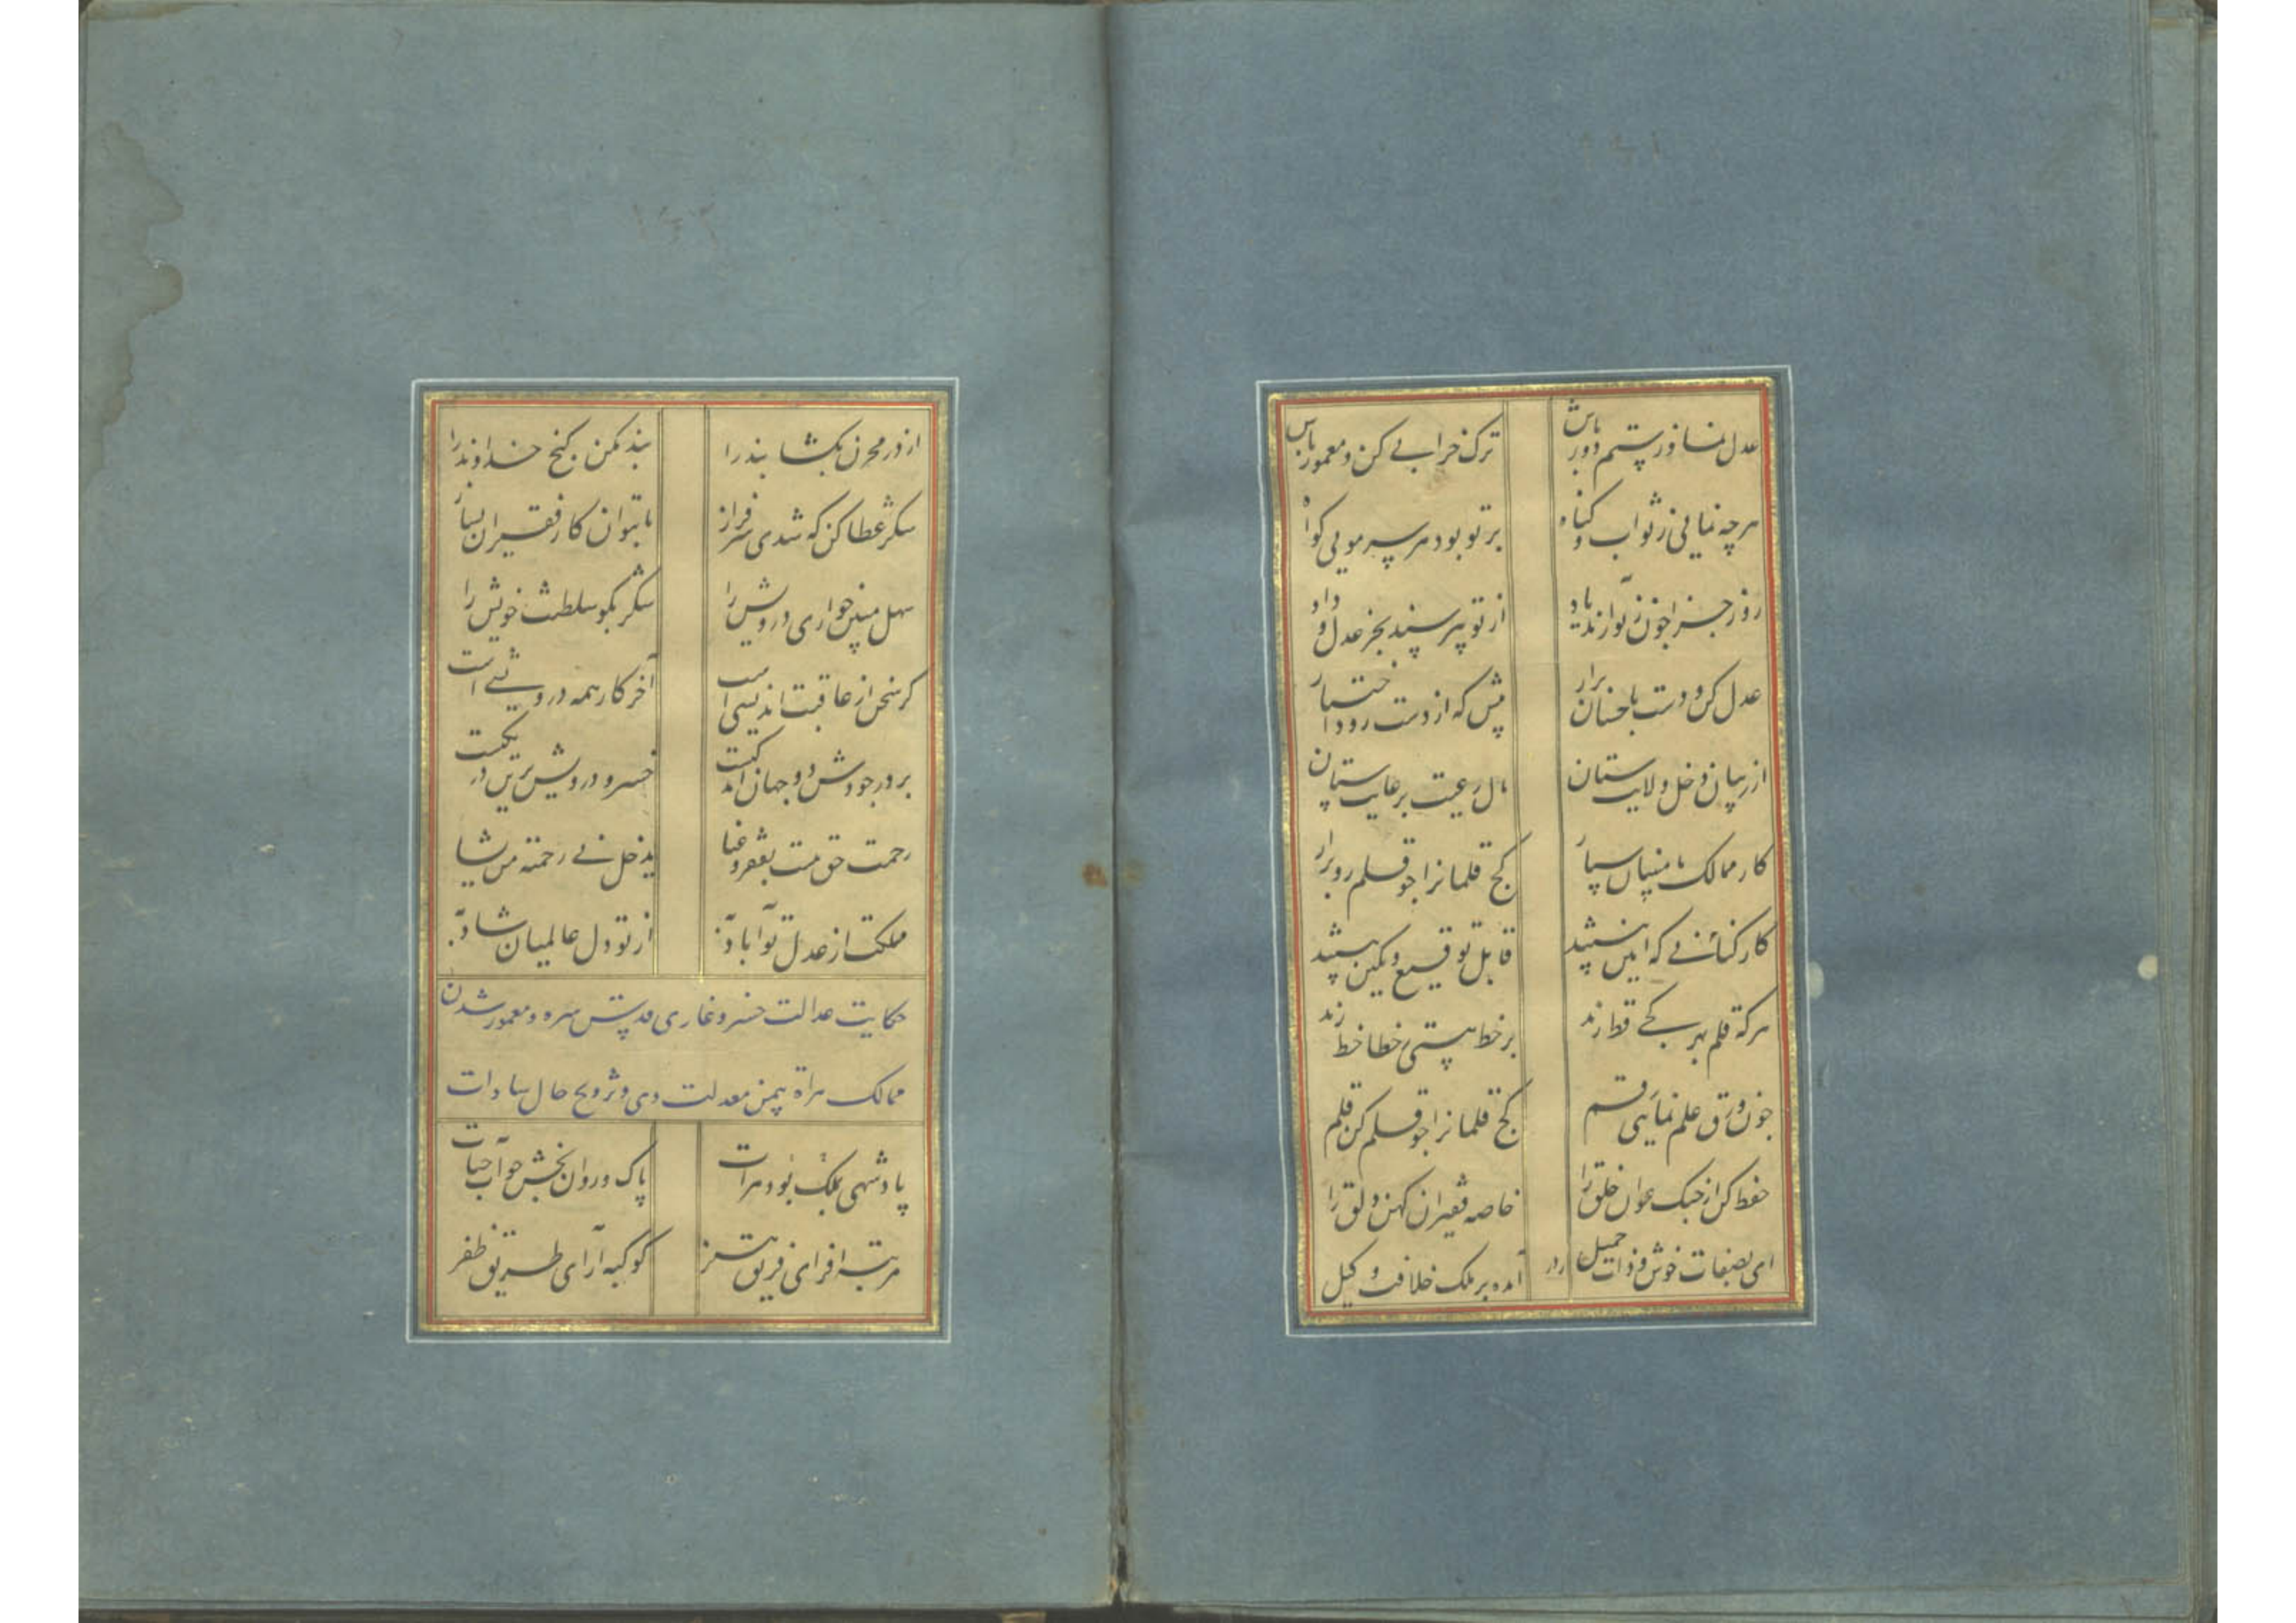 عدل نما و ز ستم دور باش ترک خرابی کن و معمور باش
هرچه نمایی ز ثواب و گناه بر تو بود هر سر مویی گواه
روز جزا چون ز تو آرند یاد از تو نپرسند بجز عدل و داد
عدل کن و دست باحسان برار پیش که از دست رود اختیار
از پی آن دخل ولایت ستان مال رعیت برعایت ستان
کار ممالک بامینان سپار کج قلمانرا چو قلم رو برار
کارکنانی که امین نیستند قابل توقیع و نگین نیستند
هر که قلم بر سر کجی قط زند بر خط هستی خطا خط زند
چون ورق علم نمایی رقم کج قلمانرا چو قلم کن قلم
حفظ کن از جنک عوان خلق را خاصه فقیران کهن دلق را
ای بصفات خوش و ذات جمیل آمده بر ملک خلافت وکیل
از در مخزن بکشا بند را بند مکن کنج خداوند را
شکر عطا کن که شدی سرفراز تا بتوان کار فقیران بساز
سهل مبین خواری درویش را شکر بکو سلطنت خویش را
کر سخن از عاقبت اندیشی است آخر کار همه درویشی است
بر در جودش دو جهان اندکیست خسرو و درویش برین در یکیست
رحمت حق هست بفقر و غنا یدخل فی رحمته من یشا
مملکت از عدل تو آباد باد از تو دل عالمیان شاد باد
حکایت عدالت خسرو غازی قدس سره و معمور شدن
ممالک هراة بیمن معدلت وی و ترویج حال سادات
پادشهی بملک بود هرات پاک و روان بخش چو آب حیات
مرتبه افزای فریق هنر کوکبه آرای طریق ظفر